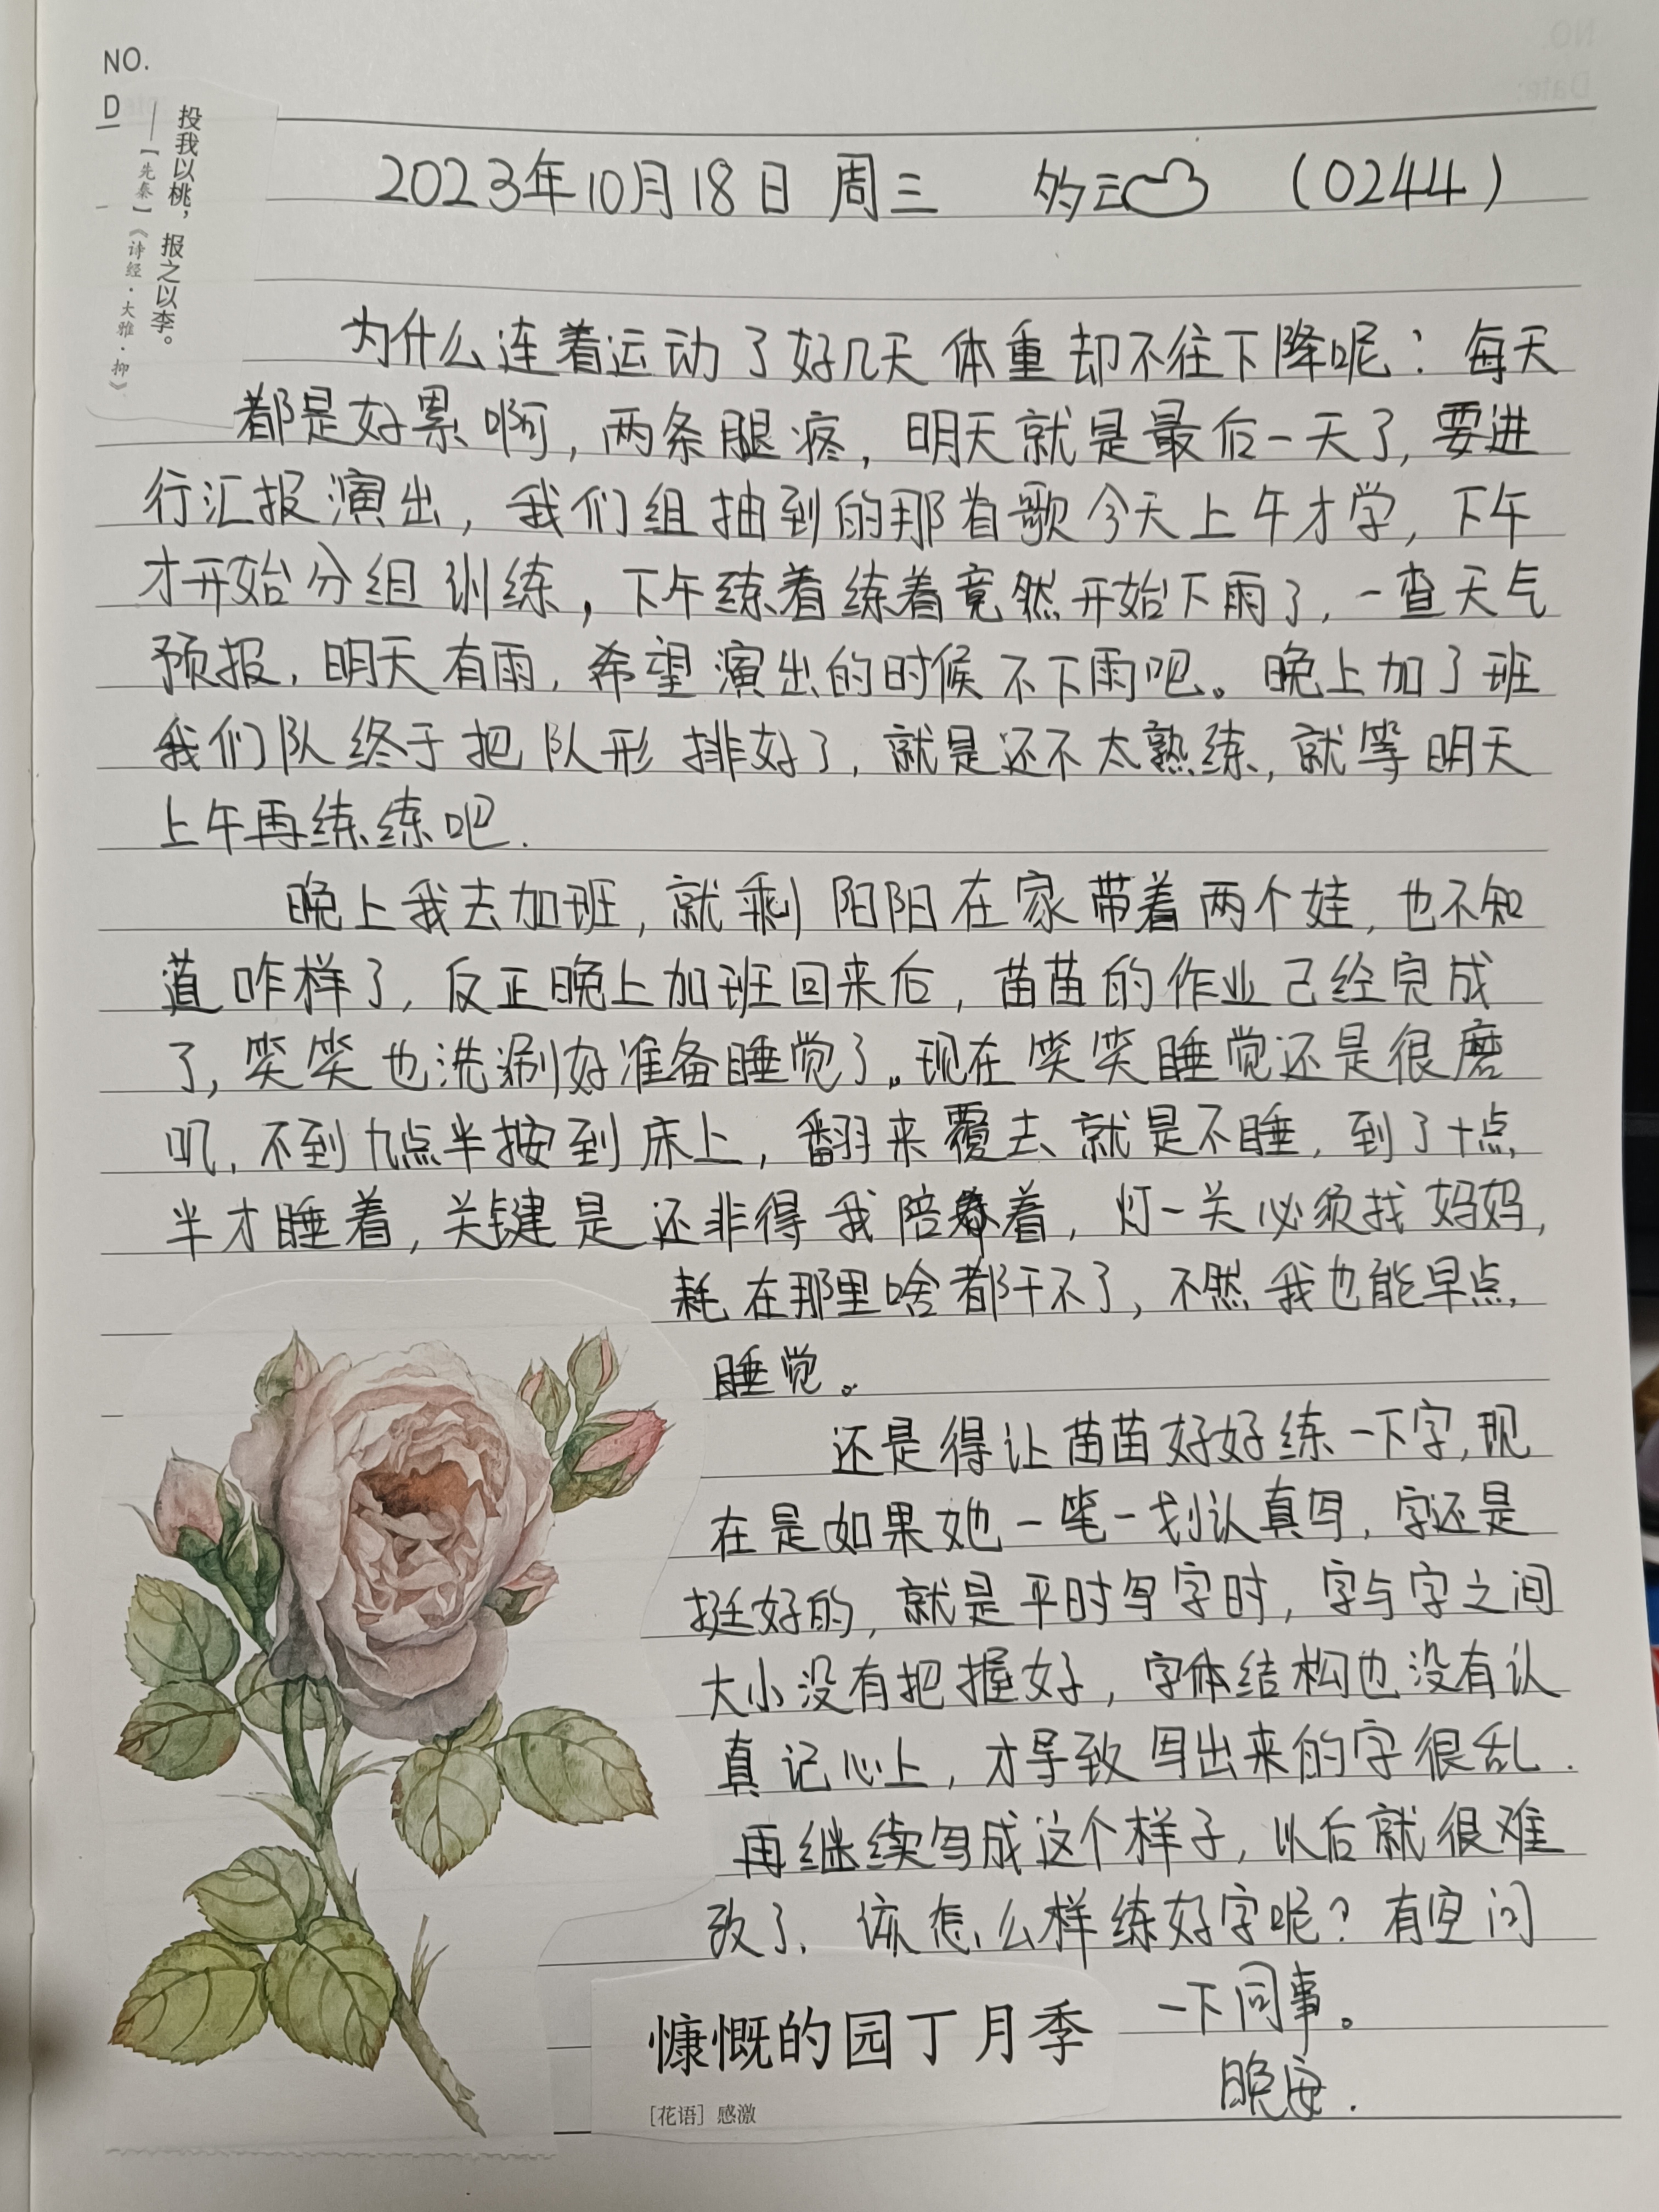 NO.
D
投我以桃，报之以李。
——【先秦】《诗经·大雅·抑》
2023年10月18日 周三 多云 (0244)
为什么连着运动了好几天体重却不往下降呢？每天
都是好累啊，两条腿疼，明天就是最后一天了，要进
行汇报演出，我们组抽到的那首歌今天上午才学，下午
才开始分组训练，下午练着练着竟然开始下雨了，一查天气
预报，明天有雨，希望演出的时候不下雨吧。晚上加了班
我们队终于把队形排好了，就是还不太熟练，就等明天
上午再练练吧.
晚上我去加班，就剩阳阳在家带着两个娃，也不知
道咋样了，反正晚上加班回来后，苗苗的作业己经完成
了，笑笑也洗涮好准备睡觉了。现在笑笑睡觉还是很磨
叽，不到九点半按到床上，翻来覆去就是不睡，到了十点
半才睡着，关键是还非得我陪着，灯一关必须找妈妈，
耗在那里啥都干不了，不然我也能早点
睡觉。
还是得让苗苗好好练一下字，现
在是如果她一笔一划认真写，字还是
挺好的，就是平时写字时，字与字之间
大小没有把握好，字体结构也没有认
真记心上，才导致写出来的字很乱.
再继续写成这个样子，以后就很难
改了、该怎么样练好字呢？有空问
一下同事。
晚安.
慷慨的园丁月季
［花语］感激